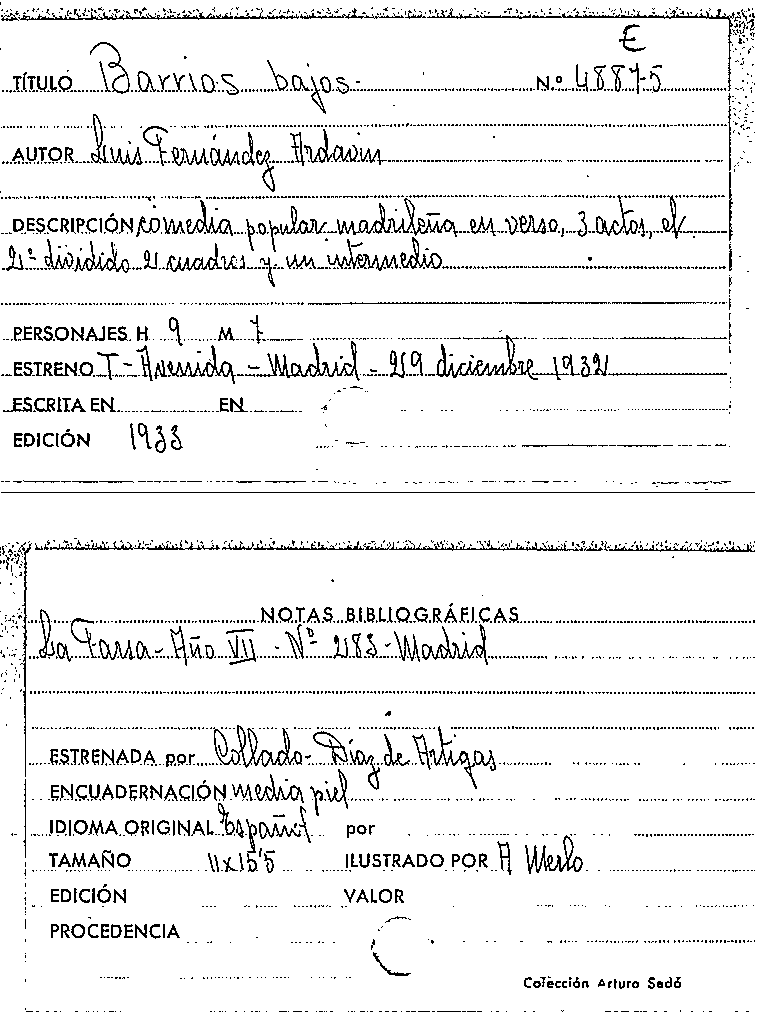 E
TÍTULO Barrios bajos- Nº 48875
AUTOR Luis Fernández Ardavin
DESCRIPCIÓN comedia popular madrileña en verso, 3 actos, el
2º dividido 2 cuadros y un intermedio
PERSONAJES H 9 M 7
ESTRENO T- Avenida - Madrid - 29 diciembre 1932
ESCRITA EN EN
EDICIÓN 1933
NOTAS BIBLIOGRÁFICAS
La Farsa - Año VII - Nº 283 - Madrid
ESTRENADA por Collado- Díaz de Artigas
ENCUADERNACIÓN media piel
IDIOMA ORIGINAL Español por
TAMAÑO 11x15'5 ILUSTRADO POR A Merlo
EDICIÓN VALOR
PROCEDENCIA
Colección Arturo Sedó